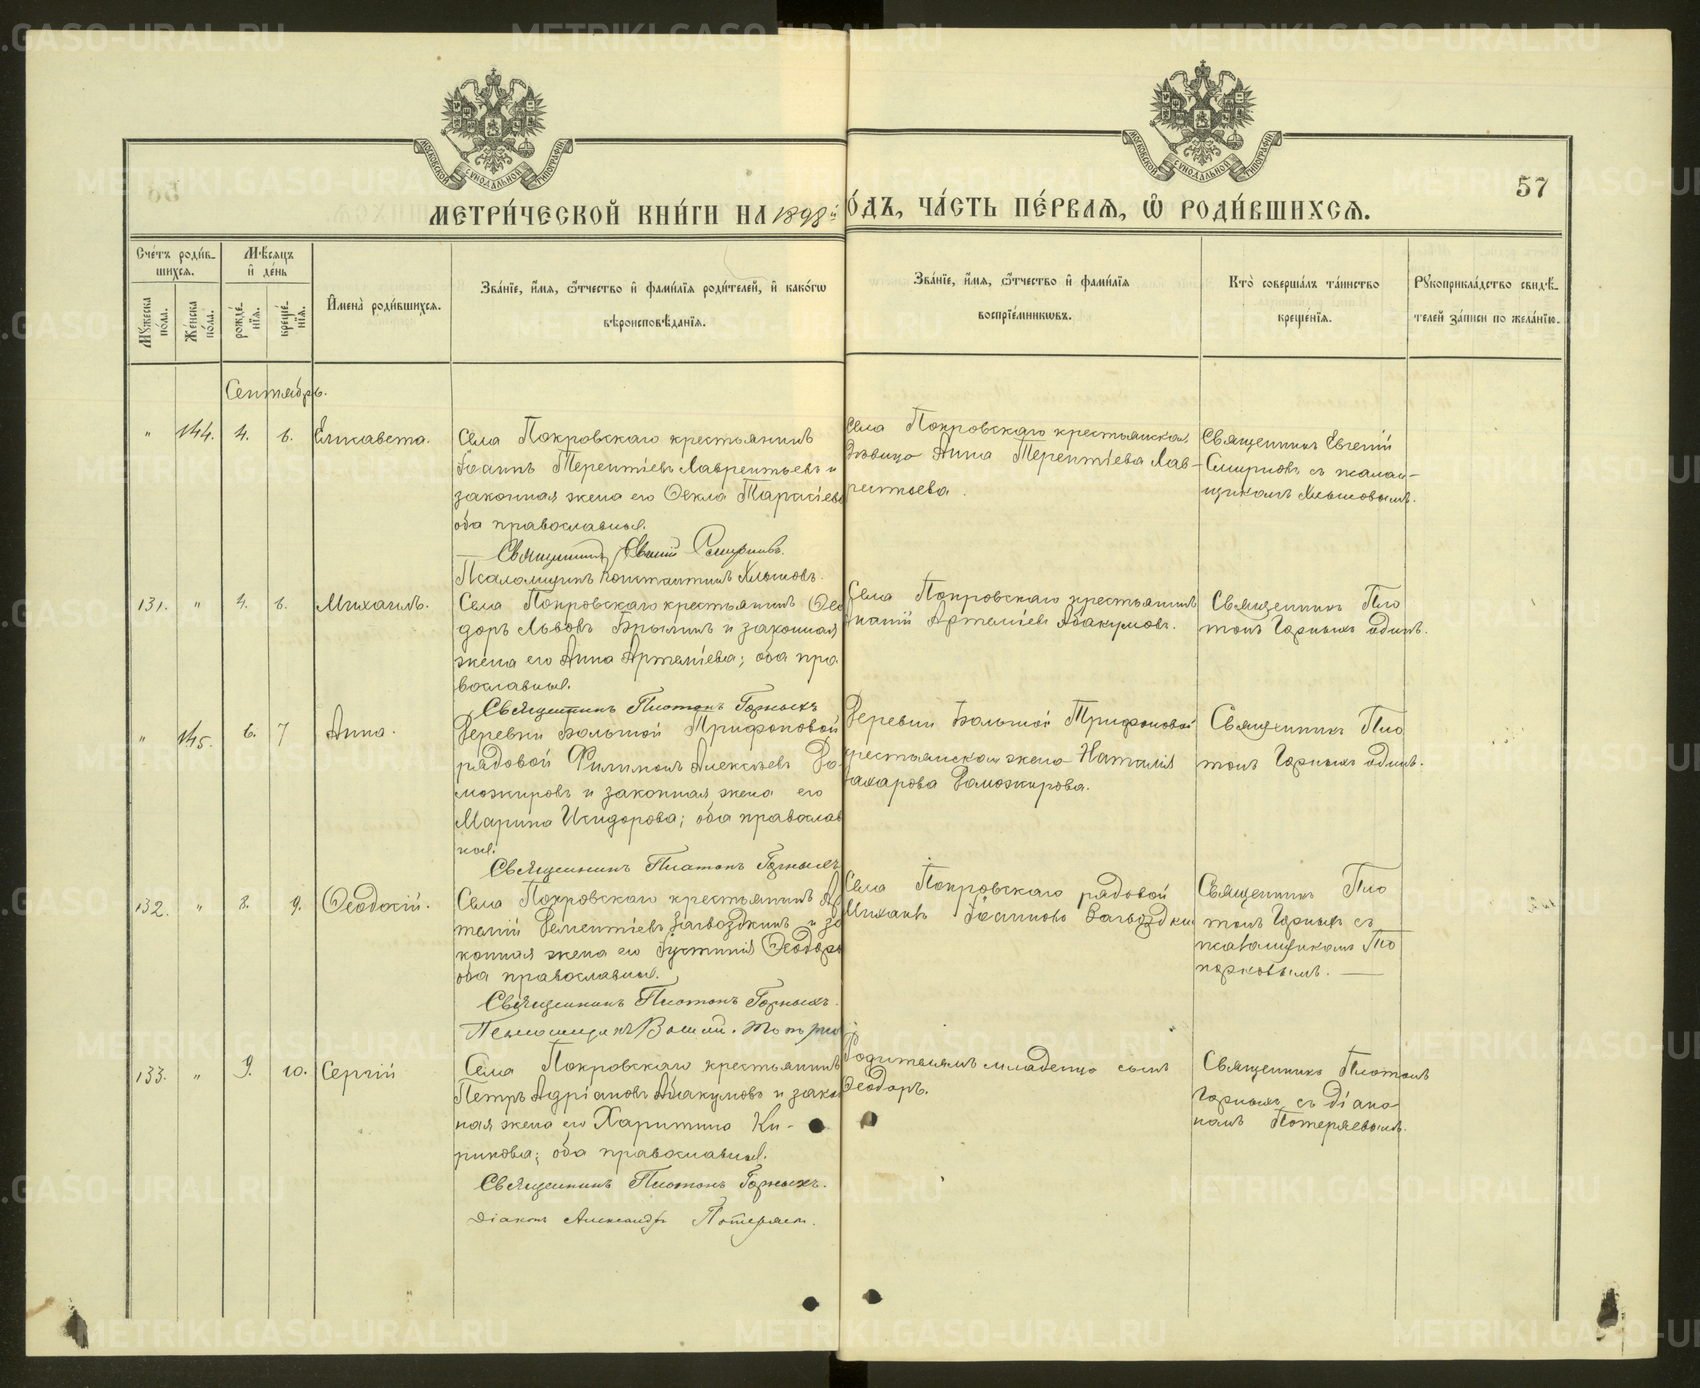 57
МЕТРИ́ЧЕСКОЙ КНИ́ГИ НА 1898й
О́ДЪ, ЧА́СТЬ ПЕ́РВАЯ, Ѡ҆ РОДИ́ВШИХСЯ.
Сче́тъ роди́в-
шихся.
Мѣ́сяцъ
и҆ де́нь
Мꙋ́жеска
по́ла.
Же́нска
по́ла.
рожде́-
нїя.
креще́-
нїя.
И҆мена̀ роди́вшихся.
Зва́нїе, и҆́мя, ѻ҆́тчество и҆ фами́лїя роди́телей, и҆ како́гѡ
вѣроисповѣ́данїя.
Зва́нїе, и҆́мя, ѻ҆́тчество и҆ фами́лїя
воспрїе́мникѡвъ.
Кто̀ соверша́лъ та́инство
креще́нїя.
Рꙋкоприкла́дство свидѣ́-
телей за́писи по жела́нїю.
Сентябрь.
" 144. 4. 6. Елисавета.
Села Покровскаго крестьянинъ
Іоаннъ Терентіевъ Лаврентьевъ и
законная жена его Ѳекла Тарасіева
оба православные.
Священникъ Евгений Смирновъ.
Псаломщикъ Константинъ Хлыновъ.
Села Покровскаго крестьянская
дѣвица Анна Терентіева Лав-
рентьева.
Священникъ Евгеній
Смирновъ съ псалом-
щикомъ Хлыновымъ.
131. " 4. 6. Михаилъ.
Села Покровскаго крестьянинъ Ѳео
доръ Львовъ Брылинъ и законная
жена его Анна Артеміева; оба пра
вославные.
Священникъ Платонъ Горныхъ
Села Покровскаго крестьянинъ
Артеміевъ Абакумовъ.
Священникъ Пла
тонъ Горныхъ одинъ.
" 145. 6. 7 Анна.
Деревни Большой Трифоновой
рядовой Филимонъ Алексѣевъ До
можировъ и законная жена его
Марина Исидорова; оба православ
ные.
Священникъ Платонъ Горныхъ
Деревни Большой Трифоновой
крестьянская жена Наталія
Захарова Доможирова.
Священникъ Пла
тонъ Горныхъ одинъ.
132. " 8. 9. Ѳеодосій.
Села Покровскаго крестьянинъ Ар
темій Дементіевъ Загвоздкинъ и за
конная жена его Іустинія Ѳеодоро
оба православные.
Священникъ Платонъ Горныхъ.
Села Покровскаго рядовой
Михаилъ Загвоздки
Священникъ Пла
тонъ Горныхъ съ
псаломщикомъ То
порковымъ.
133. " 9. 10. Сергій
Села Покровскаго крестьянинъ
Петръ Адріановъ Абакумовъ и закон
ная жена его Харитина Ки-
рикова; оба православные.
Священникъ Платонъ Горныхъ.
Діаконъ Александръ Потеряевъ.
Родителямъ младенца сынъ
Ѳеодоръ.
Священникъ Платонъ
Горныхъ съ діако
номъ Потеряевымъ.